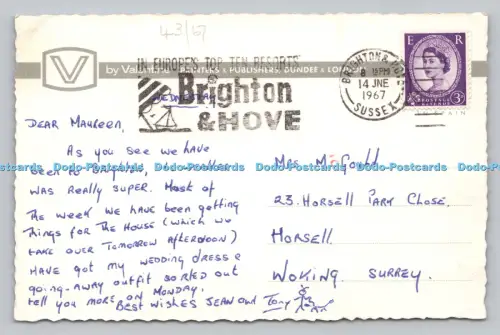 43/67
IN EUROPE'S TOP TEN RESORTS
by Valentine PRINTERS & PUBLISHERS, DUNDEE & LONDON
V
Brighton
& HOVE
BRIGHTON & HOVE
PM
14 JNE
1967
SUSSEX
E R
POSTAGE
3D
WEDNESDAY
DEAR MAUREEN,
As you see we have
been to Brighton, weather
was REALLY SUPER. Most of
the week we have been getting
things for the House (which we
take over Tomorrow afternoon)
HAVE got my WEDDING DRESS &
going-away outfit sorted out
tell you more on Monday.
Best Wishes JEAN and Tony
Mrs McGould
23. HORSELL PARK CLOSE.
HORSELL.
WOKING. SURREY.
Dodo-Postcards Dodo-Postcards Dodo-Postcards Dodo-Postcards Dodo-Postcards